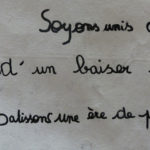 Soyons unis
d' un baiser
batissons une ère de